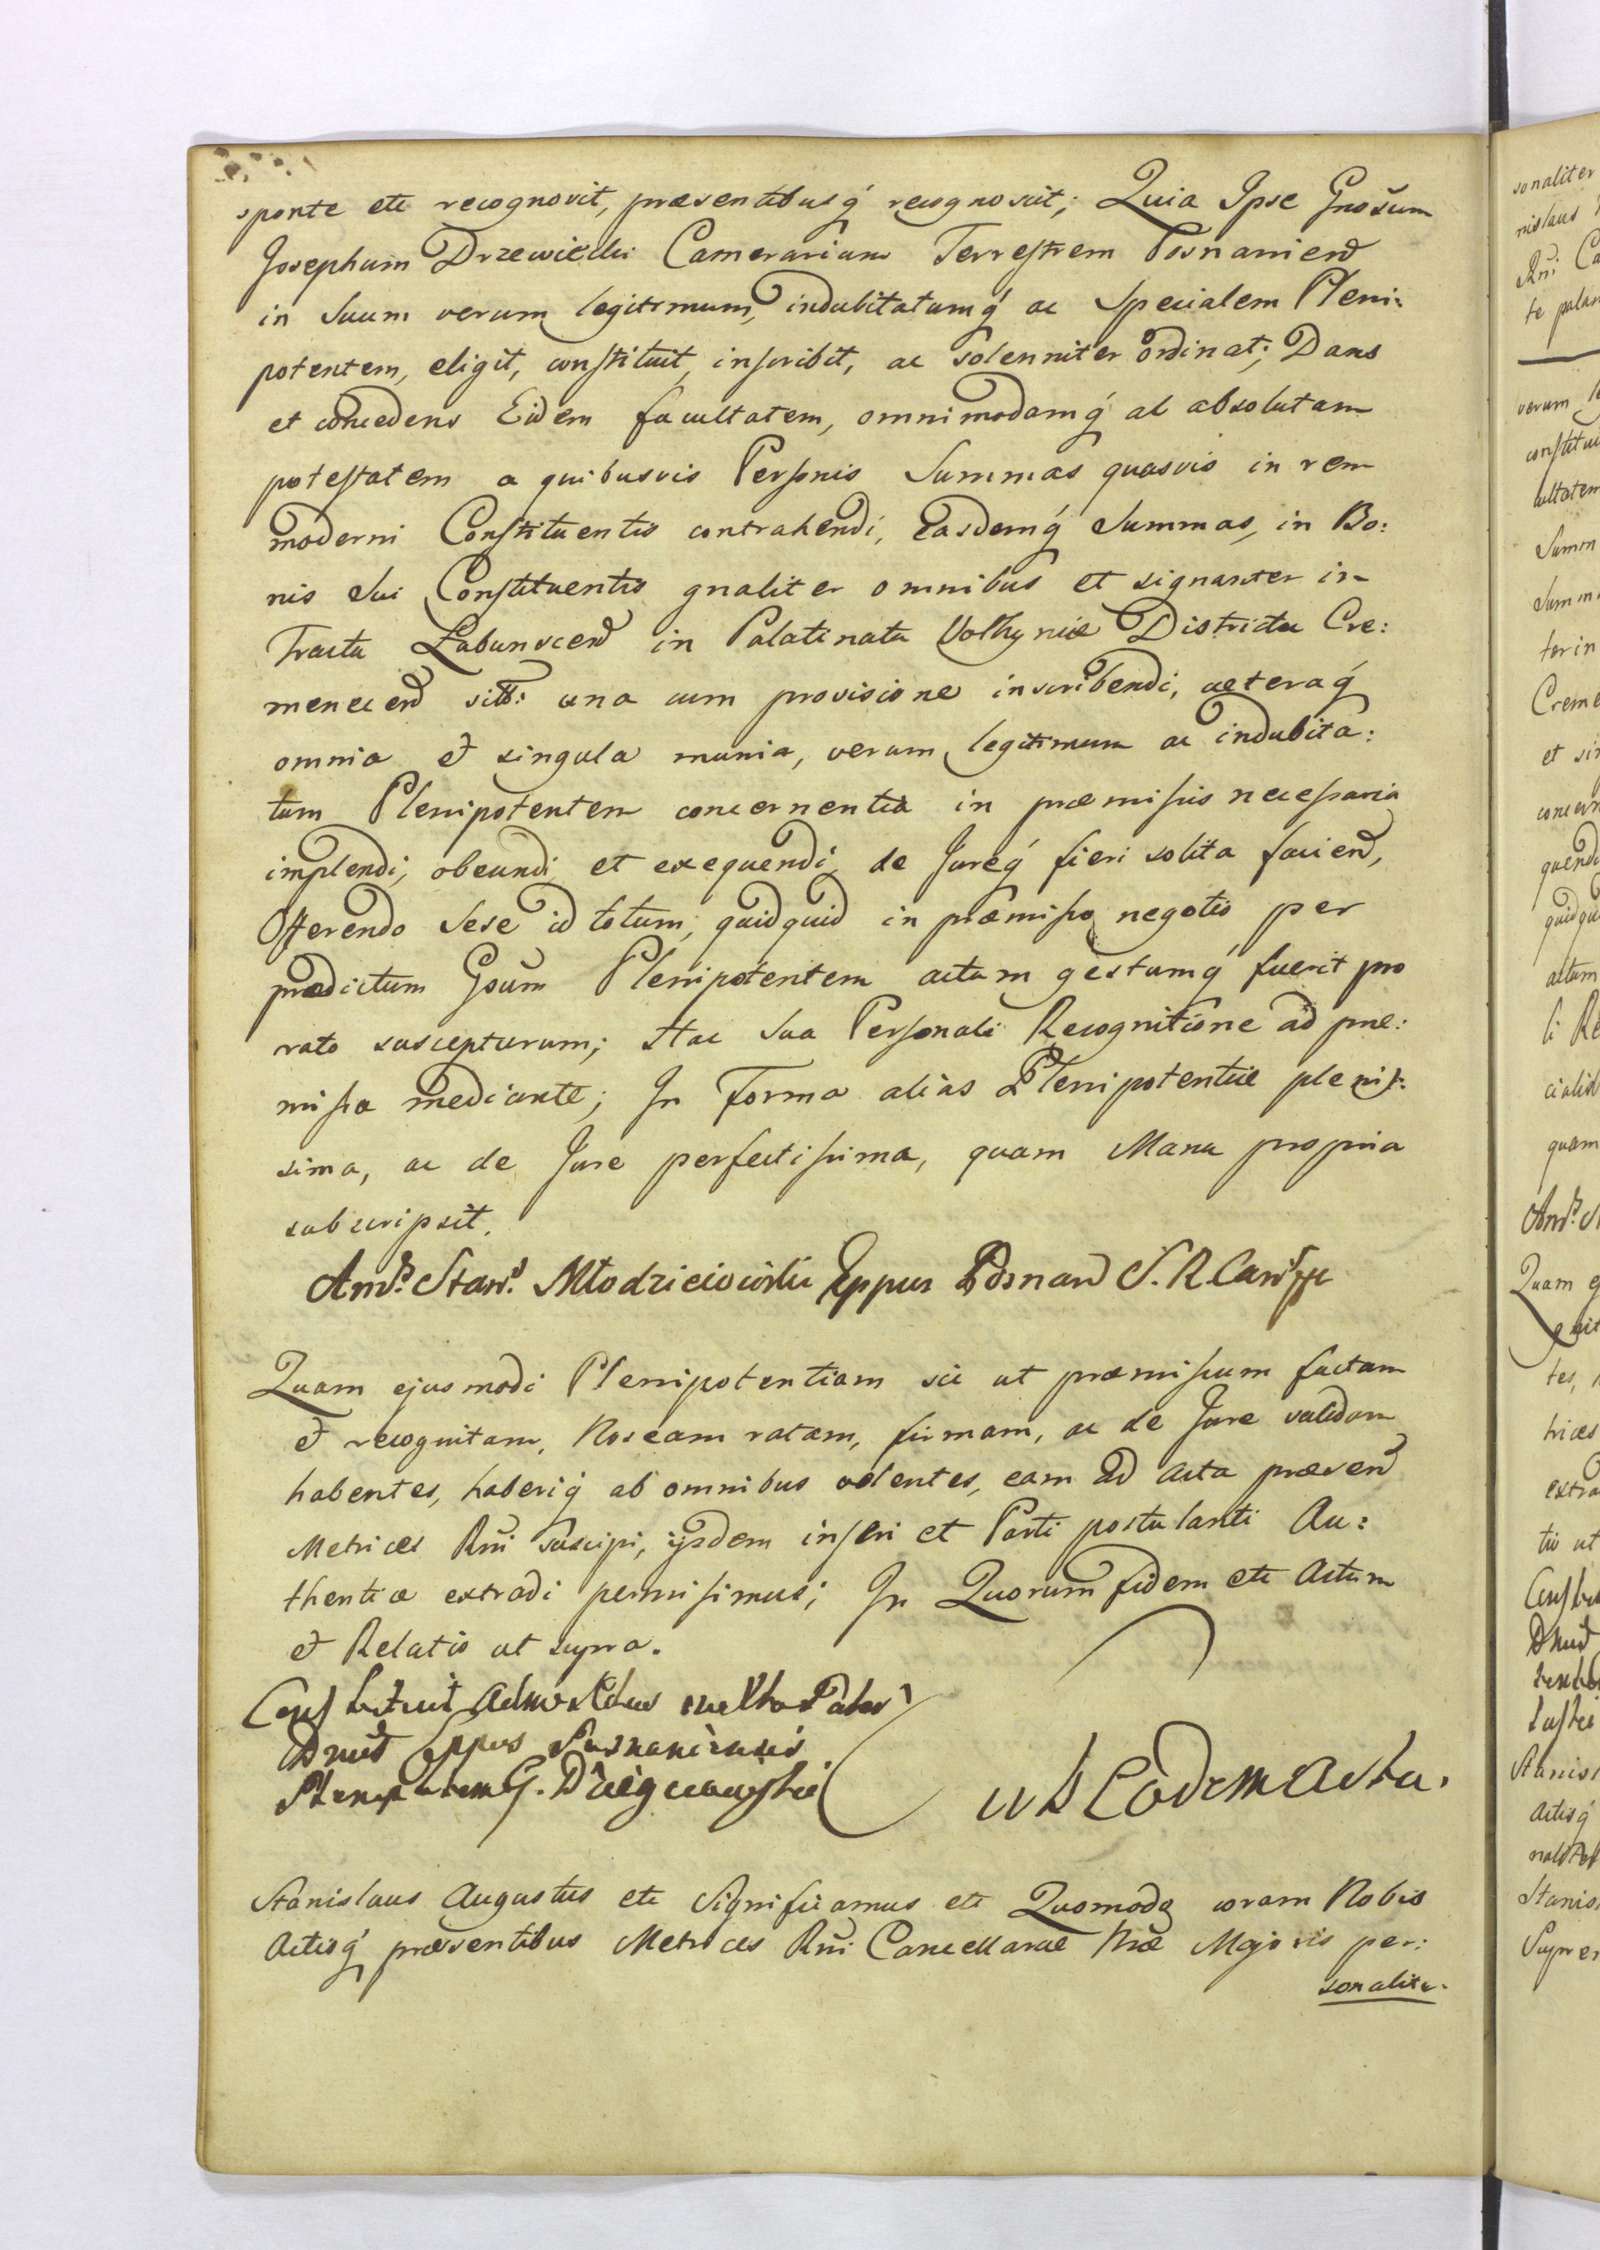 sponte etc recognovit, præsentibusq́ recognoscit; Quia Ipse Gnosum
Josephum Drzewiecki Camerarium Terrestrem Posnanien
in Suum verum legitimum, indubitatumq́ ac Specialem Pleni:
potentem, eligit, constituit, inscribit, ac Solenniter ordinat; Dans
et concedens Eidem facultatem, omnimodamq́ ac absolutam
potestatem a quibusvis Personis Summas quasvis in rem
moderni Constituentis contrahendi, Easdemq́ Summas, in Bo:
nis Sui Constituentis gnaliter omnibus et signanter in
Tractu Łabunscen in Palatinatu Volhyniæ Districtu Cre:
menecen sitt: una cum provisione inscribendi, cæteraq́
omnia et singula munia, verum legitimum ac indubita:
tum Plenipotentem concernentia in præmissis necessaria
implendi, obeundi et exequendi, de Jureq́ fieri solita faciend,
Offerendo Sese id totum, quidquid in præmisso negotio per
prædictum Gosum Plenipotentem actum gestumq́ fuerit pro
rato suscepturum; Hac Sua Personali Recognitione ad præ:
missa mediante; In Forma alias Plenipotentiæ plenis:
sima, ac de Jure perfectissima, quam Manu propria
subscripsit.
Andr. Stan. Młodzieiowski Eppus Posnan S. R. Canr
Quam ejusmodi Plenipotentiam sic ut præmissum factam
et recognitam, Nos eam ratam, firmam, ac de Jure validam
habentes, haberiq́ ab omnibus volentes, eam ad Acta præsen
Metrices Rni Suscipi, ijsdem inseri et Parti postulanti Au:
thentice extradi permisimus; In Quorum fidem etc Actum
et Relatio ut supra.
Constituit
Eppus Posnaniensis
Plenipotem G.
ut Eodem Actu.
Stanislaus Augustus etc Significamus etc Quomodo coram Nobis
Actisq́ præsentibus Metrices Rni Cancellariæ Nræ Majoris per:
sonaliter
sonaliter
nislaus
Rni Ca
te palam
verum le
constitui
cultatem
Summ
Summ
ter in
Creme
et sin
concern
quendi
quidqu
actum
li Re
quam
Quam e
tes,
trices
extra
tio ut
Stanis
Actisq́
Stanis
Supre